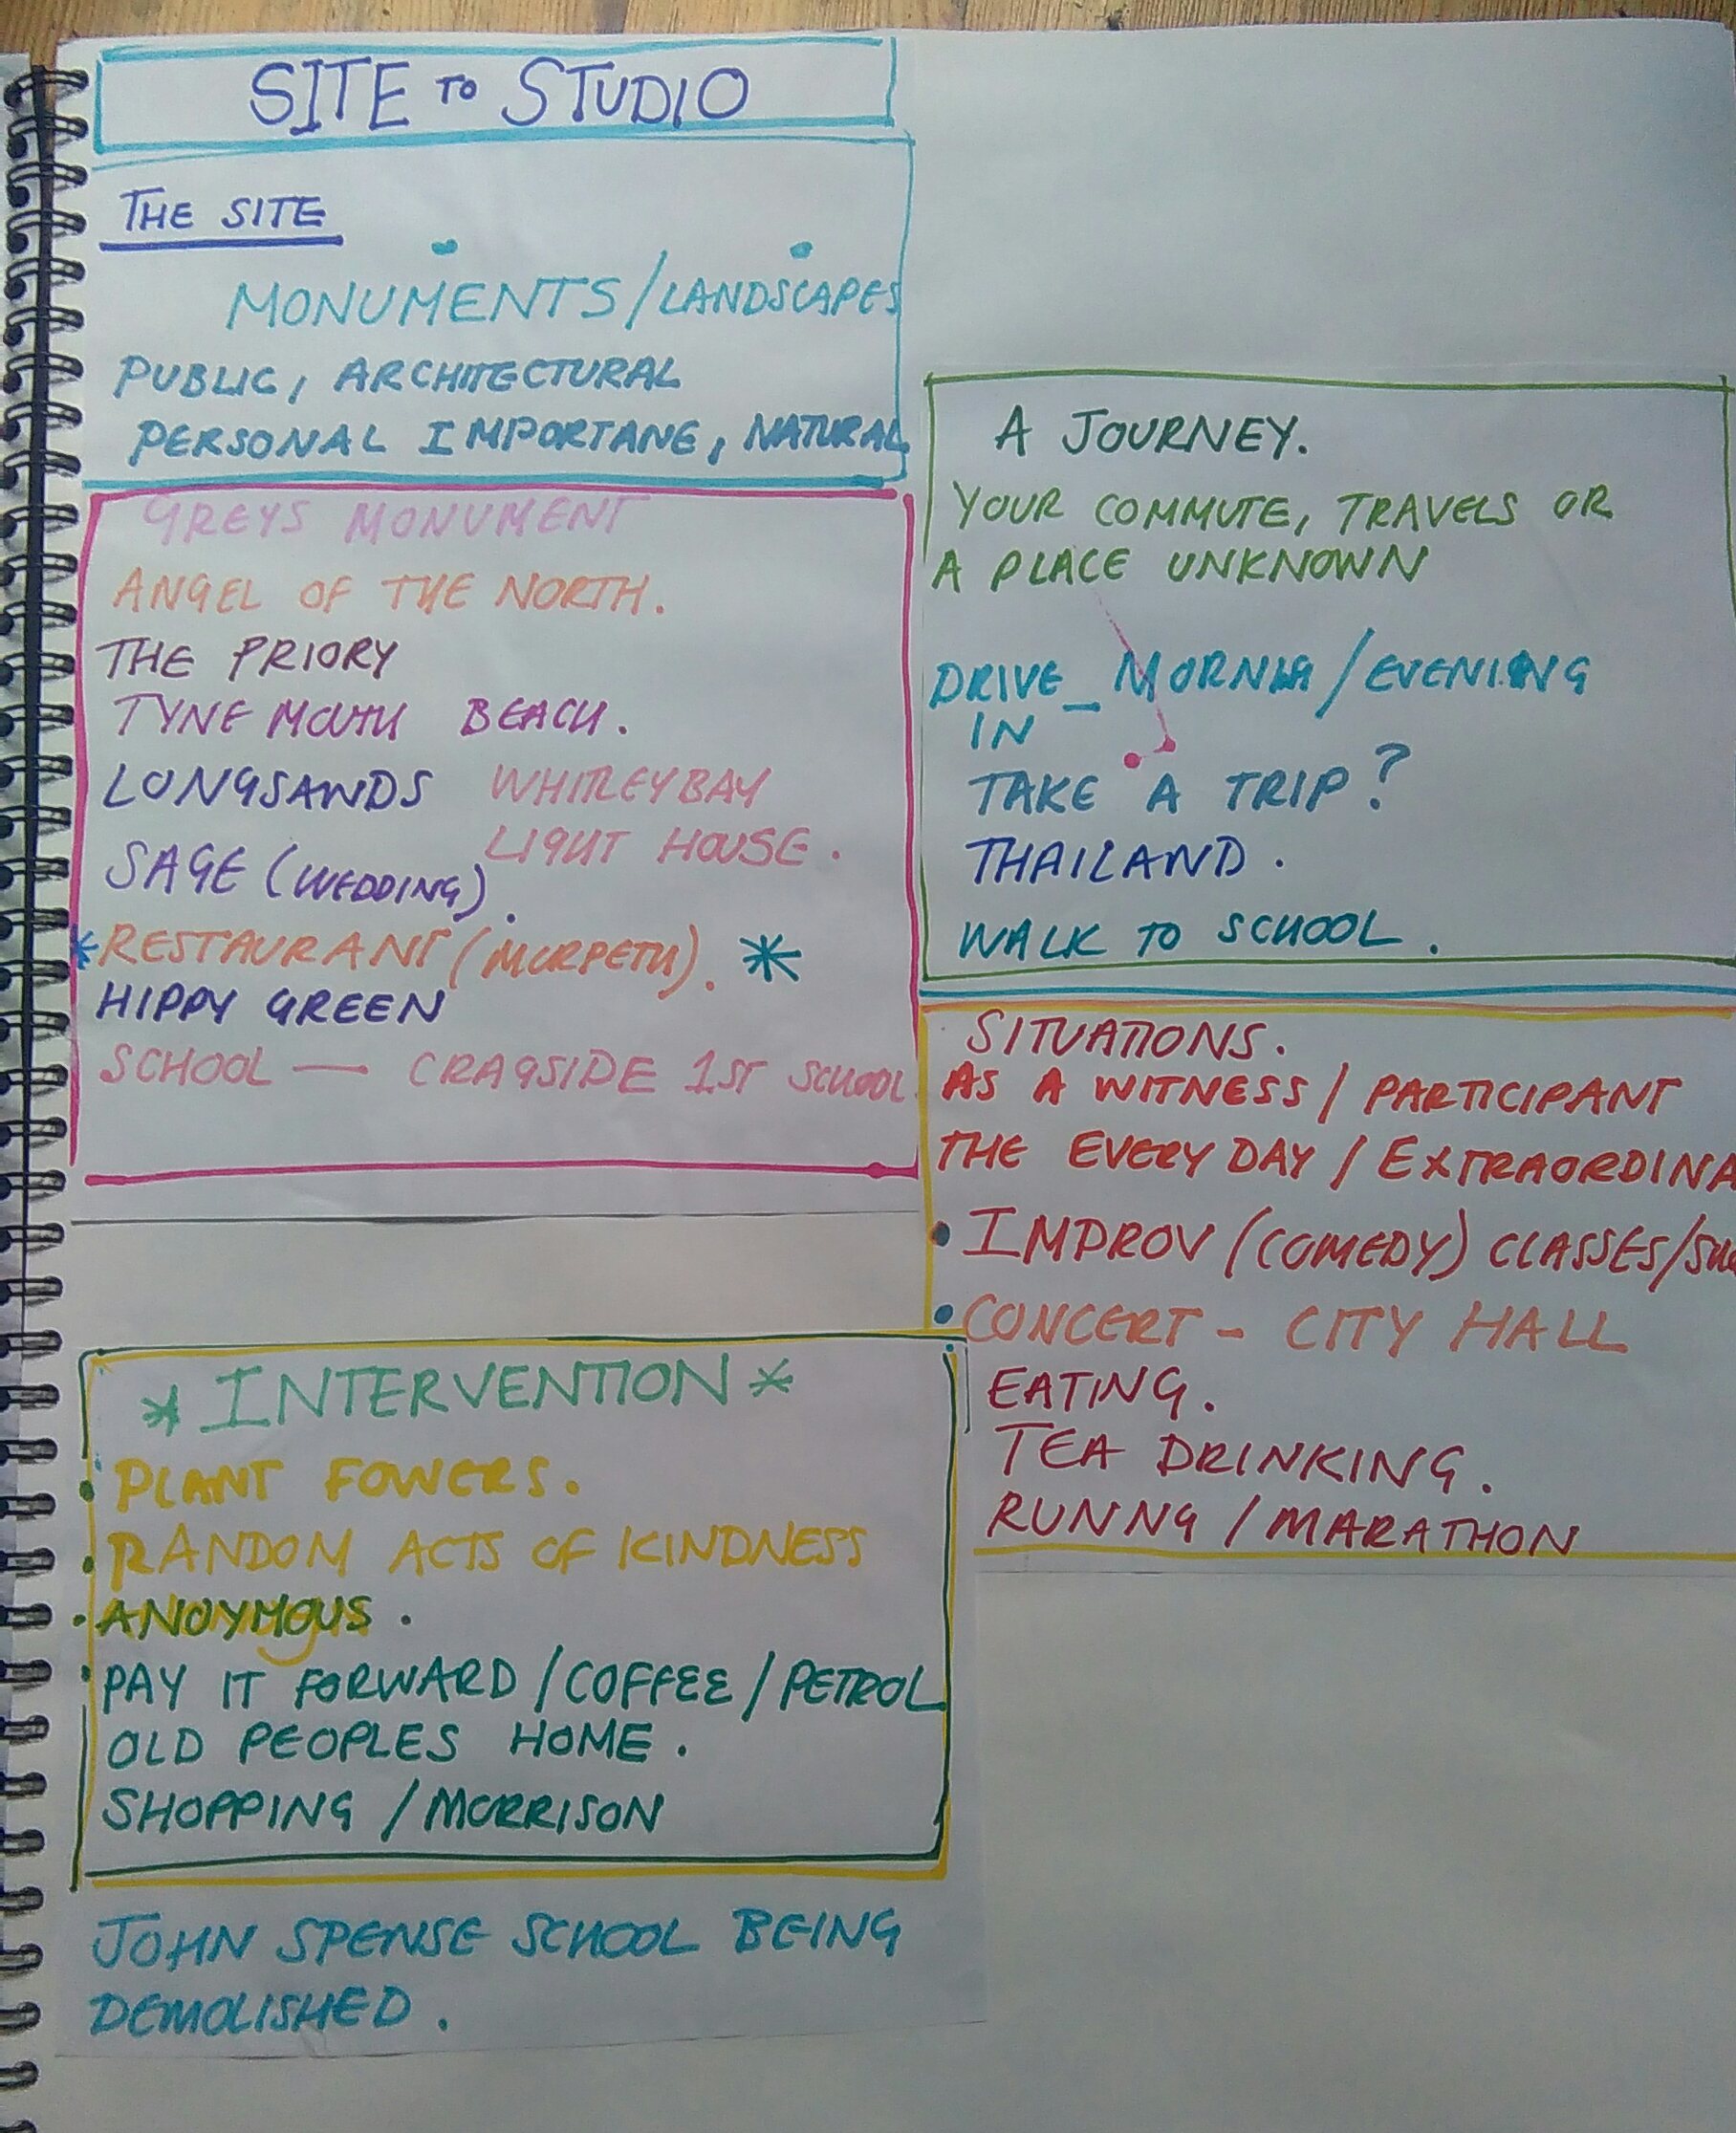 SITE TO STUDIO
THE SITE
MONUMENTS/LANDSCAPES
PUBLIC, ARCHITECTURAL
PERSONAL IMPORTANE, NATURAL
GREYS MONUMENT
ANGEL OF THE NORTH.
THE PRIORY
TYNEMOUTH BEACH.
LONGSANDS WHITLEYBAY
LIGHT HOUSE.
SAGE (WEDDING).
*RESTAURANT (MORPETH). *
HIPPY GREEN
SCHOOL — CRAGSIDE 1ST SCHOOL.
*INTERVENTION*
• PLANT FOWERS.
• RANDOM ACTS OF KINDNESS
• ANOYMOUS.
• PAY IT FORWARD/COFFEE/PETROL
OLD PEOPLES HOME.
SHOPPING/MORRISON
JOHN SPENSE SCHOOL BEING
DEMOLISHED.
A JOURNEY.
YOUR COMMUTE, TRAVELS OR
A PLACE UNKNOWN
DRIVE_ MORNING/EVENING
IN
TAKE A TRIP?
THAILAND.
WALK TO SCHOOL.
SITUATIONS.
AS A WITNESS/PARTICIPANT
THE EVERY DAY/EXTRAORDINA
• IMPROV (COMEDY) CLASSES/
• CONCERT - CITY HALL
EATING.
TEA DRINKING.
RUNNG/MARATHON